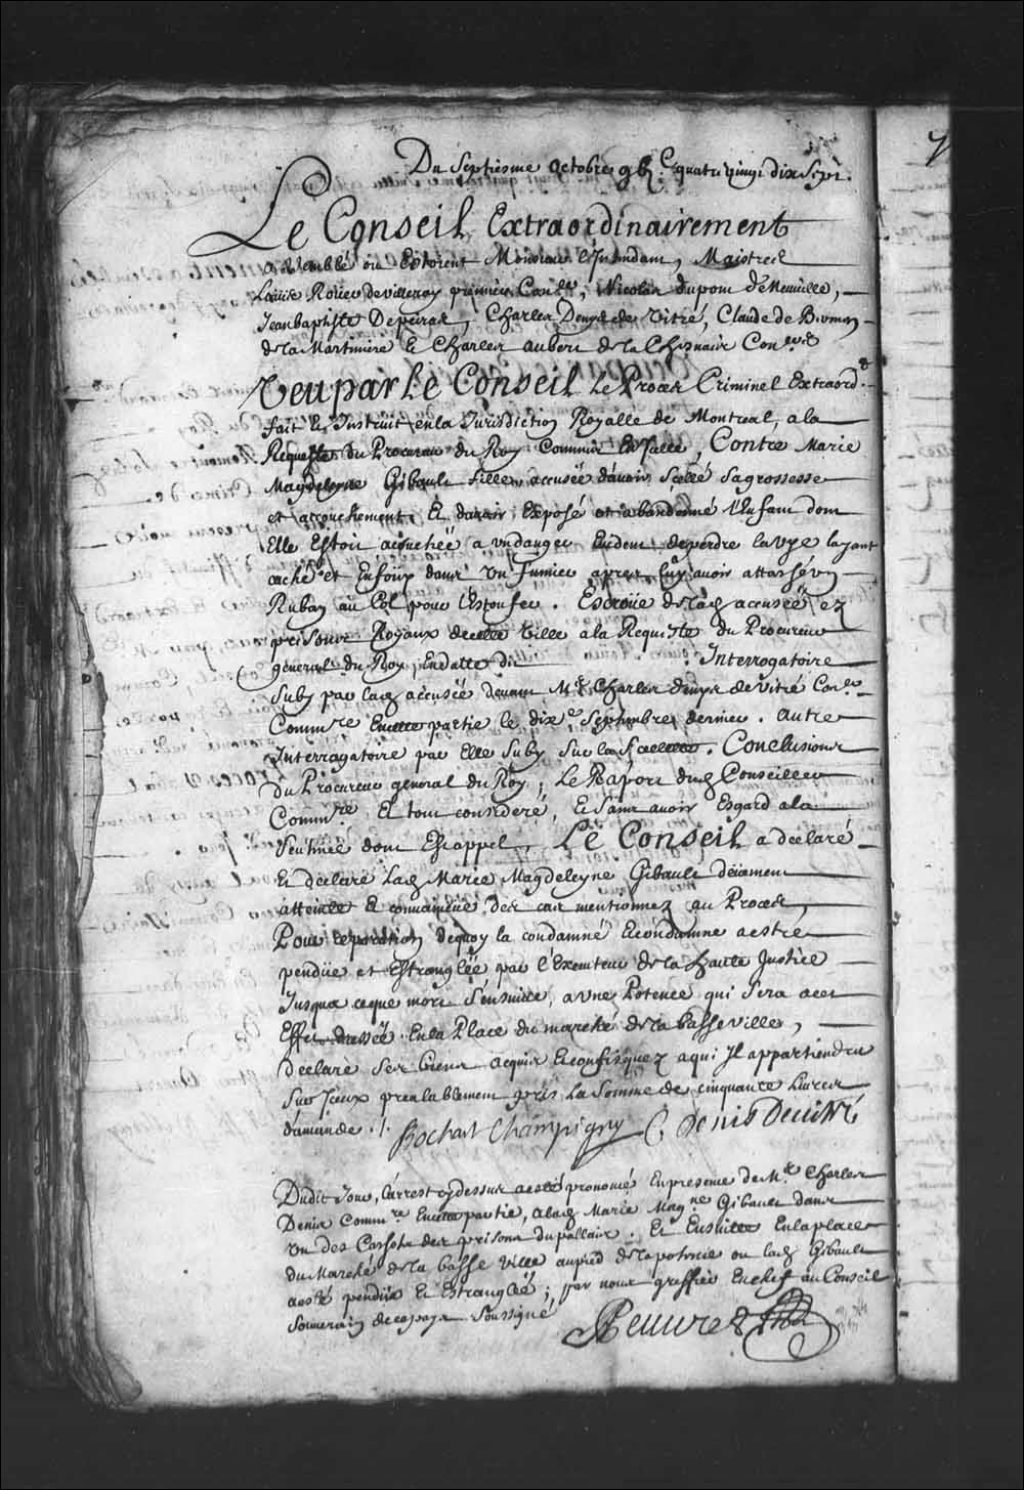 Du Septiesme Octobre gbj.^C quatre vingt dix Sept.
Le Conseil Extraordinairement
assemblé ou Estoient Monsieur l'Intendant, Maistres
Louis Roüer de villeray premier Con.er, Nicolas dupont de Neuuille,
Jean baptiste Depeiras, Charles Denys de Vitré, Claude de Bermen
de la Martiniere Et Charles aubert de la Chesnaie Con.ers
Veu par Le Conseil Le Proces Criminel Extraord.t
fait Et Instruit en la Jurisdiction Royalle de Montreal, a la
Requeste du Procureur du Roy Commis En Icelle, Contre Marie
Magdeleyne Gibault fille accusée d'auoir Scellé Sa grossesse
et accouchement, Et d'auoir Exposé et abandonné l'Enfant dont
Elle Estoit acouchée a vn danger Euident de perdre la vye layant
caché et Enfoüy dans un fumier apres Luy auoir attaché vn
Ruban au Col pour l'Estoufer. Escroüe de lad accusée ez
prisons Royaux de cette Ville a la Requeste du Procureur
general du Roy, En datte du Interrogatoire
Suby par lad accusée deuant M.e Charles denys de Vitré Con.er
Comm.re En cette partie le dix.e Septembre dernier. Autre
Interrogatoire par Elle Suby Sur la Scellette. Conclusions
du Procureur general du Roy, Le Raport dud Conseiller
Comm.re Et tout consideré, Et Sans auoir Esgard a la
Sentence dont Est appel, Le Conseil a declaré
Et declare lad Marie Magdeleyne Gibault deüement
atteinte Et conuaincüe des cas mentionnez au Proces,
Pour reparation dequoy la condamné Et condamne a estre
pendüe et Estranglée par l'Executeur de la haute Justice
Jusqua ce que mort s'ensuiue, a vne Potence qui Sera a cet
Effet dressée En la Place du marché de la basse ville,
declare Ses biens acquis Et confisquez a qui Il appartiendra
Sur Iceux prealablement pris La Somme de cinquante Liures
d'amande ./. Bochart Champigny C. Denis De Vitré
Dudit Jour, l'arrest cy dessus a esté prononcé En presence de M.e Charles
Denis Comm.re En cette partie, a lad Marie Mag.ne Gibault dans
vn des Cachots des prisons du pallais. Et Ensuitte En la place
du Marché de la basse Ville au pied de la potence ou lad Gibault
a esté pendüe Et Estranglée; par nous greffier En chef au Conseil
Souuerain de ce pays Soussigné
Peuuret